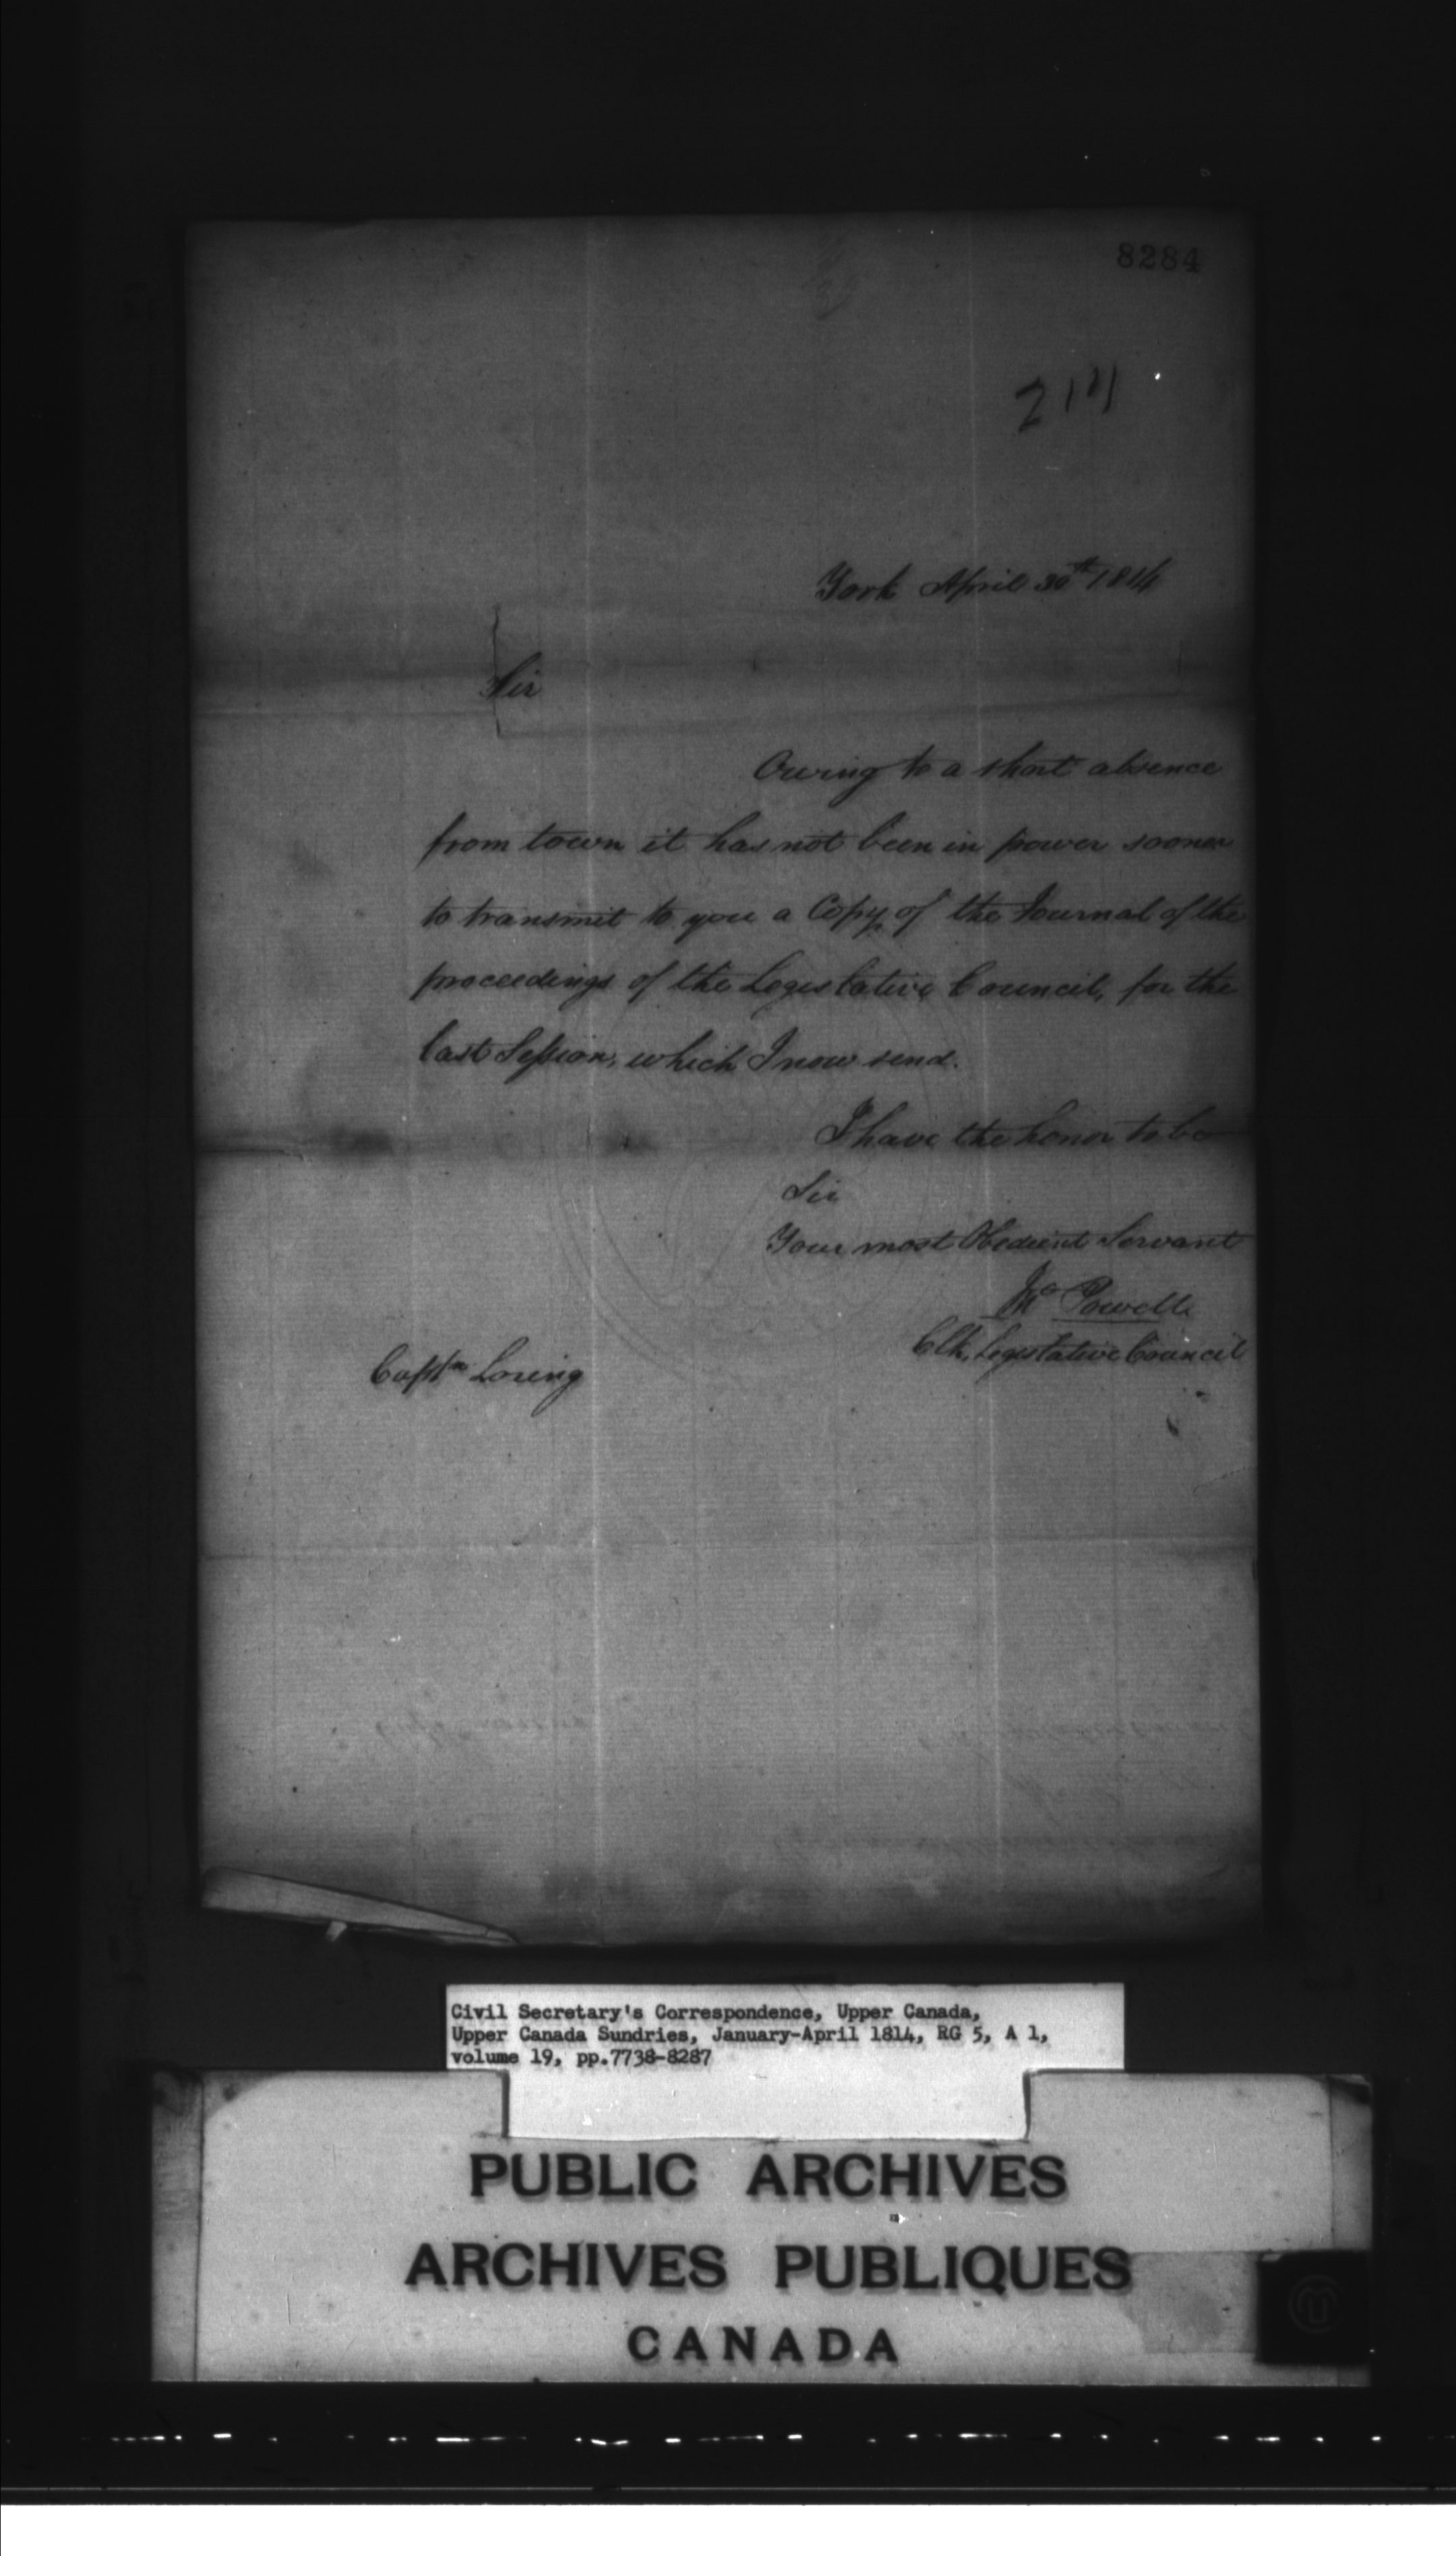 8284
York April 30th 1814
Sir
Owing to a short absence
from town it has not been in power sooner
to transmit to you a Copy of the Journal of the
proceedings of the Legislative Council, for the
last Session, which I now send.
I have the honor to be
Sir
Your most Obedient Servant
Powell
Clk, Legislative Council
Captn Loring
Civil Secretary's Correspondence, Upper Canada,
Upper Canada Sundries, January-April 1814, RG 5, A 1,
volume 19, pp.7738-8287
PUBLIC ARCHIVES
ARCHIVES PUBLIQUES
CANADA